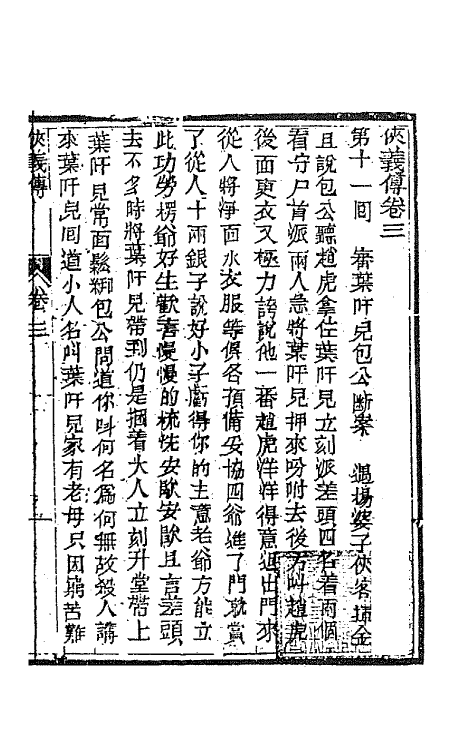 俠義傳卷三
第十一回　審葉阡兒包公斷案　遇楊婆子俠客揮金
且說包公聽趙虎拿住葉阡兒立刻派差頭四名着兩個
看守尸首派兩人急將葉阡兒押來吩咐去後方叫趙虎
後面更衣又極力誇說他一番趙虎洋洋得意退出門來
從人將淨面水衣服等俱各預備妥協四爺進了門就賞
了從人十兩銀子說好小子虧得你的主意老爺方能立
此功勞楞爺好生歡喜慢慢的梳洗安歇安歇且言差頭
去不多時將葉阡兒帶到仍是捆着大人立刻升堂帶上
葉阡兒當面鬆綁包公問道你叫何名爲何無故殺人講
來葉阡兒回道小人名叫葉阡兒家有老母只因窮苦難
俠義傳
卷三
一